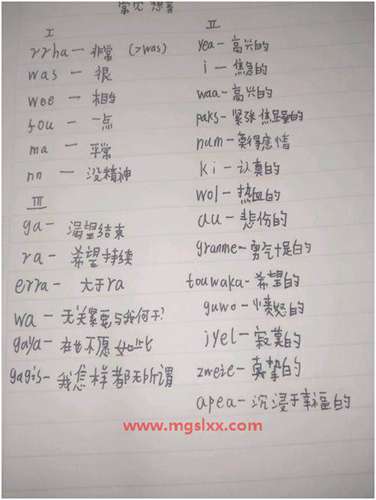 常见想音
I
rrha — 非常 (>was)
was — 很
wee — 相当
fou — 一点
ma — 平常
nn — 没精神
III
ga — 渴望结束
ra — 希望持续
erra — 大于ra
wa — 无关紧要与我何干?
gaya — 再也不愿如此
gagis — 我怎样都无所谓
II
yea — 高兴的
i — 焦急的
waa — 高兴的
paks — 紧张焦显的
num — 莫得感情
ki — 认真的
wol — 热血的
au — 悲伤的
granme — 勇气十足的
touwaka — 希望的
guwo — 愤怒的
jyel — 寂寞的
zweie — 真挚的
apea — 沉浸于幸福的
www.mgslxx.com